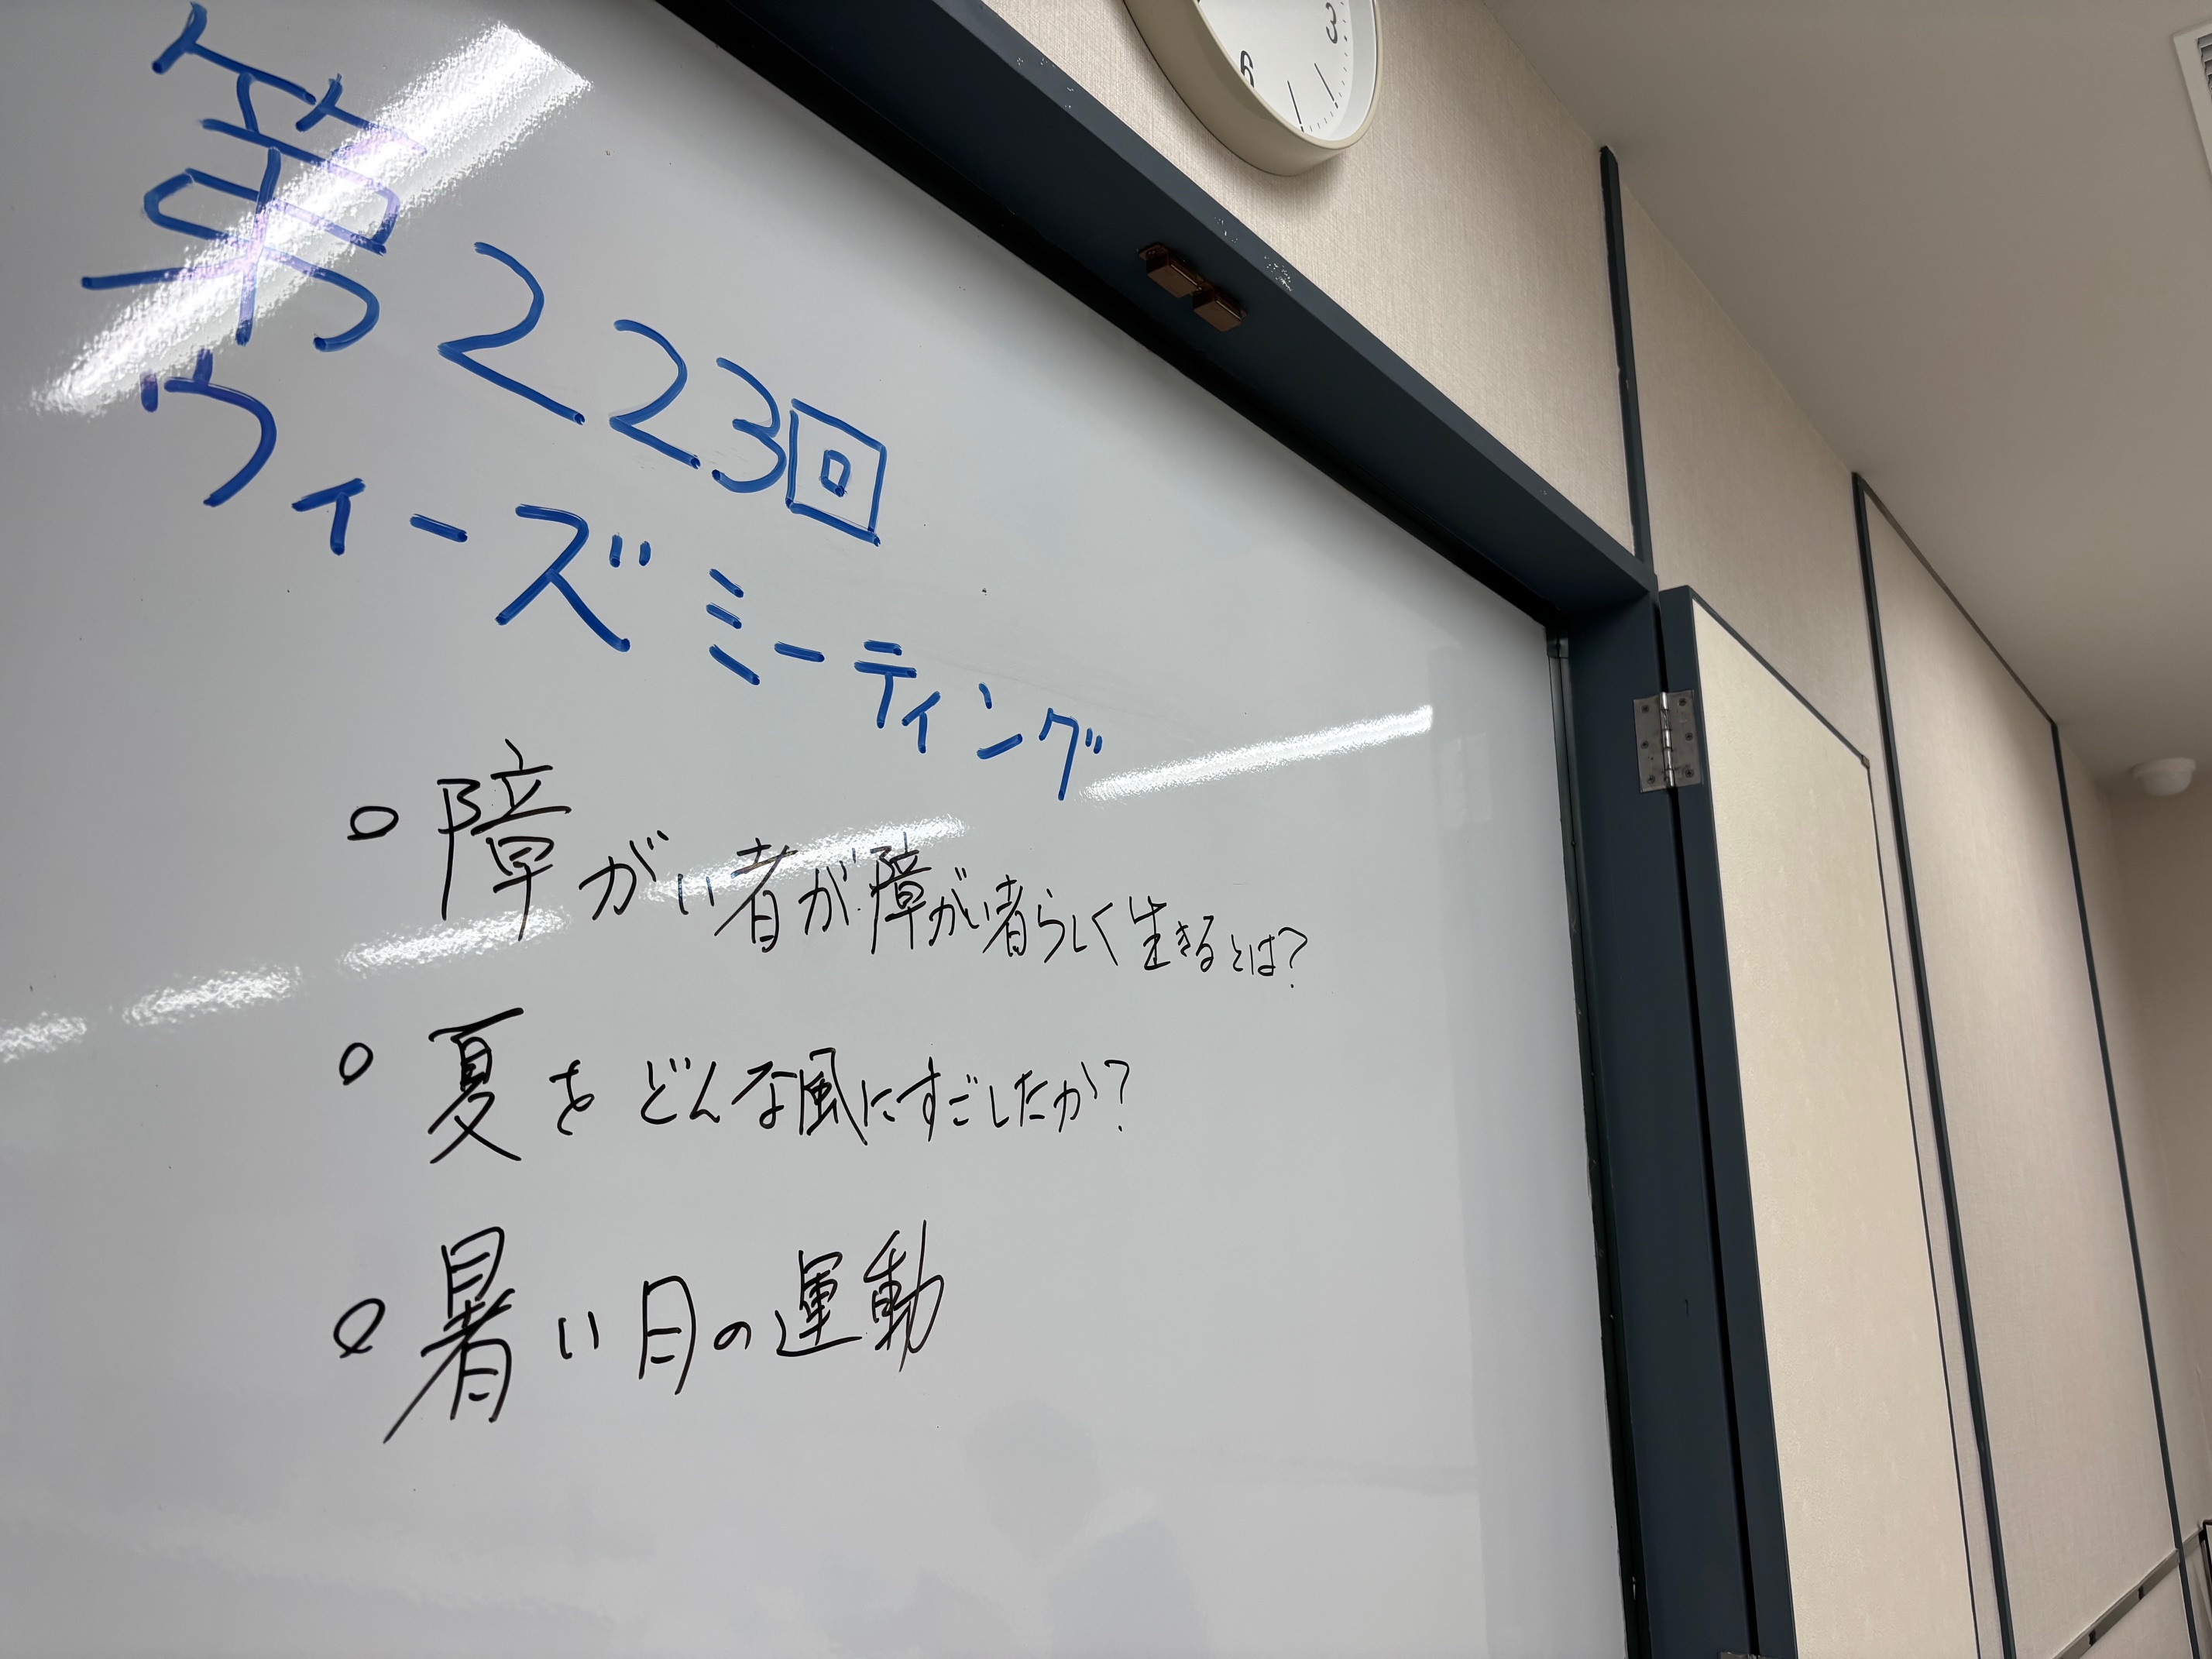 第223回
ウィーズミーティング
○障がい者が障がい者らしく生きるとは?
○夏をどんな風にすごしたか?
○暑い日の運動
3
6